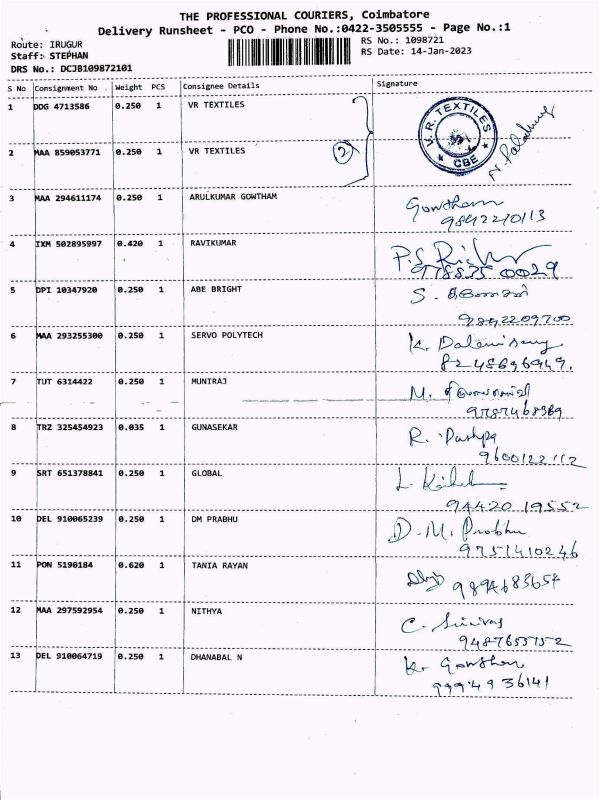 THE PROFESSIONAL COURIERS, Coimbatore
Delivery Runsheet - PCO - Phone No.:0422-3505555 - Page No.:1
Route: IRUGUR
Staff: STEPHAN
DRS No.: DCJB109872101
RS No.: 1098721
RS Date: 14-Jan-2023
S No Consignment No Weight PCS Consignee Details Signature
1 DDG 4713586 0.250 1 VR TEXTILES
V.R. TEXTILES ★ CBE ★
2 MAA 859053771 0.250 1 VR TEXTILES 2
3 MAA 294611174 0.250 1 ARULKUMAR GOWTHAM Gowtham
9842210113
4 IXM 502895997 0.420 1 RAVIKUMAR
97883500029
5 DPI 10347920 0.250 1 ABE BRIGHT S.
9842209700
6 MAA 293255300 0.250 1 SERVO POLYTECH K.
8248696949.
7 TUT 6314422 0.250 1 MUNIRAJ M.
9787468969
8 TRZ 325454923 0.035 1 GUNASEKAR R. Pushpa
9600122112
9 SRT 651378841 0.250 1 GLOBAL L.
94420 19552
10 DEL 910065239 0.250 1 DM PRABHU D.M. Prabhu
9751410246
11 PON 5190184 0.620 1 TANIA RAYAN 9894683654
12 MAA 297592954 0.250 1 NITHYA C. Srinivas
9487655752
13 DEL 910064719 0.250 1 DHANABAL N K. Gowtham
9994936141